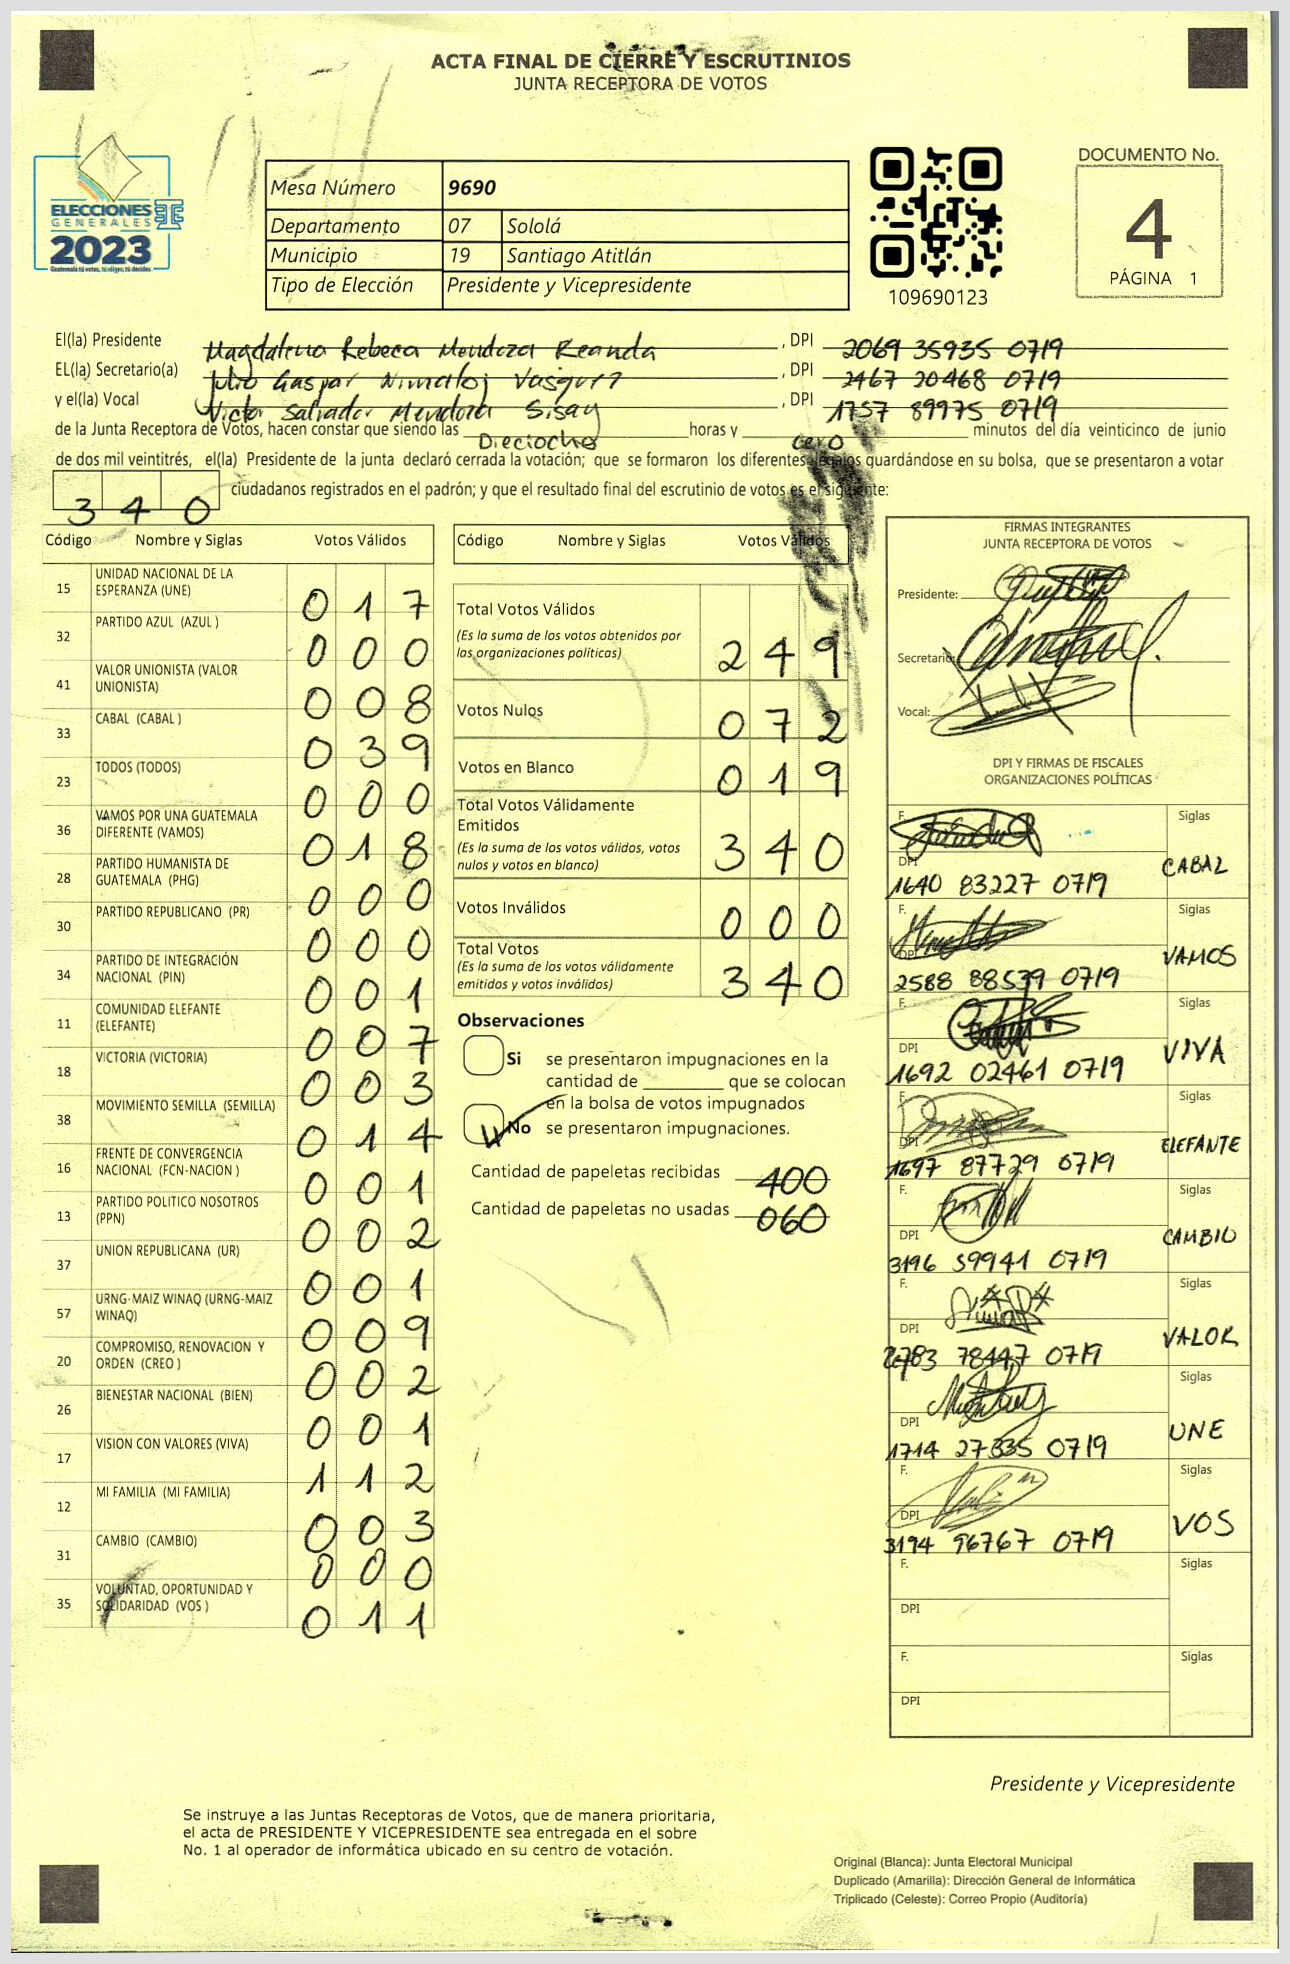 ACTA FINAL DE CIERRE Y ESCRUTINIOS
JUNTA RECEPTORA DE VOTOS
ELECCIONES
GENERALES
2023
Guatemala tú votas, tú eliges, tú decides
Mesa Número 9690
Departamento 07 Sololá
Municipio 19 Santiago Atitlán
Tipo de Elección Presidente y Vicepresidente
109690123
DOCUMENTO No.
4
PÁGINA 1
El(la) Presidente Magdalena Rebeca Mendoza Reanda, DPI 2069 35935 0719
EL(la) Secretario(a) Julio Gaspar, DPI 2467 20468 0719
y el(la) Vocal Victor Salvador Mendoza Sisay, DPI 1757 89975 0719
de la Junta Receptora de Votos, hacen constar que siendo las Dieciocho horas y cero minutos del día veinticinco de junio
de dos mil veintitrés, el(la) Presidente de la junta declaró cerrada la votación; que se formaron los diferentes legajos guardándose en su bolsa, que se presentaron a votar
340 ciudadanos registrados en el padrón; y que el resultado final del escrutinio de votos es el siguiente:
Código Nombre y Siglas Votos Válidos
15 UNIDAD NACIONAL DE LA ESPERANZA (UNE) 017
32 PARTIDO AZUL (AZUL ) 000
41 VALOR UNIONISTA (VALOR UNIONISTA) 008
33 CABAL (CABAL ) 039
23 TODOS (TODOS) 000
36 VAMOS POR UNA GUATEMALA DIFERENTE (VAMOS) 018
28 PARTIDO HUMANISTA DE GUATEMALA (PHG) 000
30 PARTIDO REPUBLICANO (PR) 000
34 PARTIDO DE INTEGRACIÓN NACIONAL (PIN) 001
11 COMUNIDAD ELEFANTE (ELEFANTE) 007
18 VICTORIA (VICTORIA) 003
38 MOVIMIENTO SEMILLA (SEMILLA) 014
16 FRENTE DE CONVERGENCIA NACIONAL (FCN-NACION ) 001
13 PARTIDO POLITICO NOSOTROS (PPN) 002
37 UNION REPUBLICANA (UR) 001
57 URNG-MAIZ WINAQ (URNG-MAIZ WINAQ) 009
20 COMPROMISO, RENOVACION Y ORDEN (CREO ) 002
26 BIENESTAR NACIONAL (BIEN) 001
17 VISION CON VALORES (VIVA) 112
12 MI FAMILIA (MI FAMILIA) 003
31 CAMBIO (CAMBIO) 000
35 VOLUNTAD, OPORTUNIDAD Y SOLIDARIDAD (VOS ) 011
Código Nombre y Siglas Votos Válidos
Total Votos Válidos
(Es la suma de los votos obtenidos por
las organizaciones políticas) 249
Votos Nulos 072
Votos en Blanco 019
Total Votos Válidamente
Emitidos
(Es la suma de los votos válidos, votos
nulos y votos en blanco) 340
Votos Inválidos 000
Total Votos
(Es la suma de los votos válidamente
emitidos y votos inválidos) 340
Observaciones
Si se presentaron impugnaciones en la
cantidad de ________ que se colocan
en la bolsa de votos impugnados
No se presentaron impugnaciones.
Cantidad de papeletas recibidas 400
Cantidad de papeletas no usadas 060
FIRMAS INTEGRANTES
JUNTA RECEPTORA DE VOTOS
Presidente:
Secretario:
Vocal:
DPI Y FIRMAS DE FISCALES
ORGANIZACIONES POLÍTICAS
F. Siglas
DPI 1640 83227 0719 CABAL
F. Siglas
DPI 2588 88539 0719 VAMOS
F. Siglas
DPI 1692 02461 0719 VIVA
F. Siglas
DPI 1697 87729 0719 ELEFANTE
F. Siglas
DPI 3196 59941 0719 CAMBIO
F. Siglas
DPI 78447 0719 VALOR
F. Siglas
DPI 1714 27335 0719 UNE
F. Siglas
DPI 3194 96767 0719 VOS
F. Siglas
DPI
F. Siglas
DPI
Presidente y Vicepresidente
Se instruye a las Juntas Receptoras de Votos, que de manera prioritaria,
el acta de PRESIDENTE Y VICEPRESIDENTE sea entregada en el sobre
No. 1 al operador de informática ubicado en su centro de votación.
Original (Blanca): Junta Electoral Municipal
Duplicado (Amarilla): Dirección General de Informática
Triplicado (Celeste): Correo Propio (Auditoría)